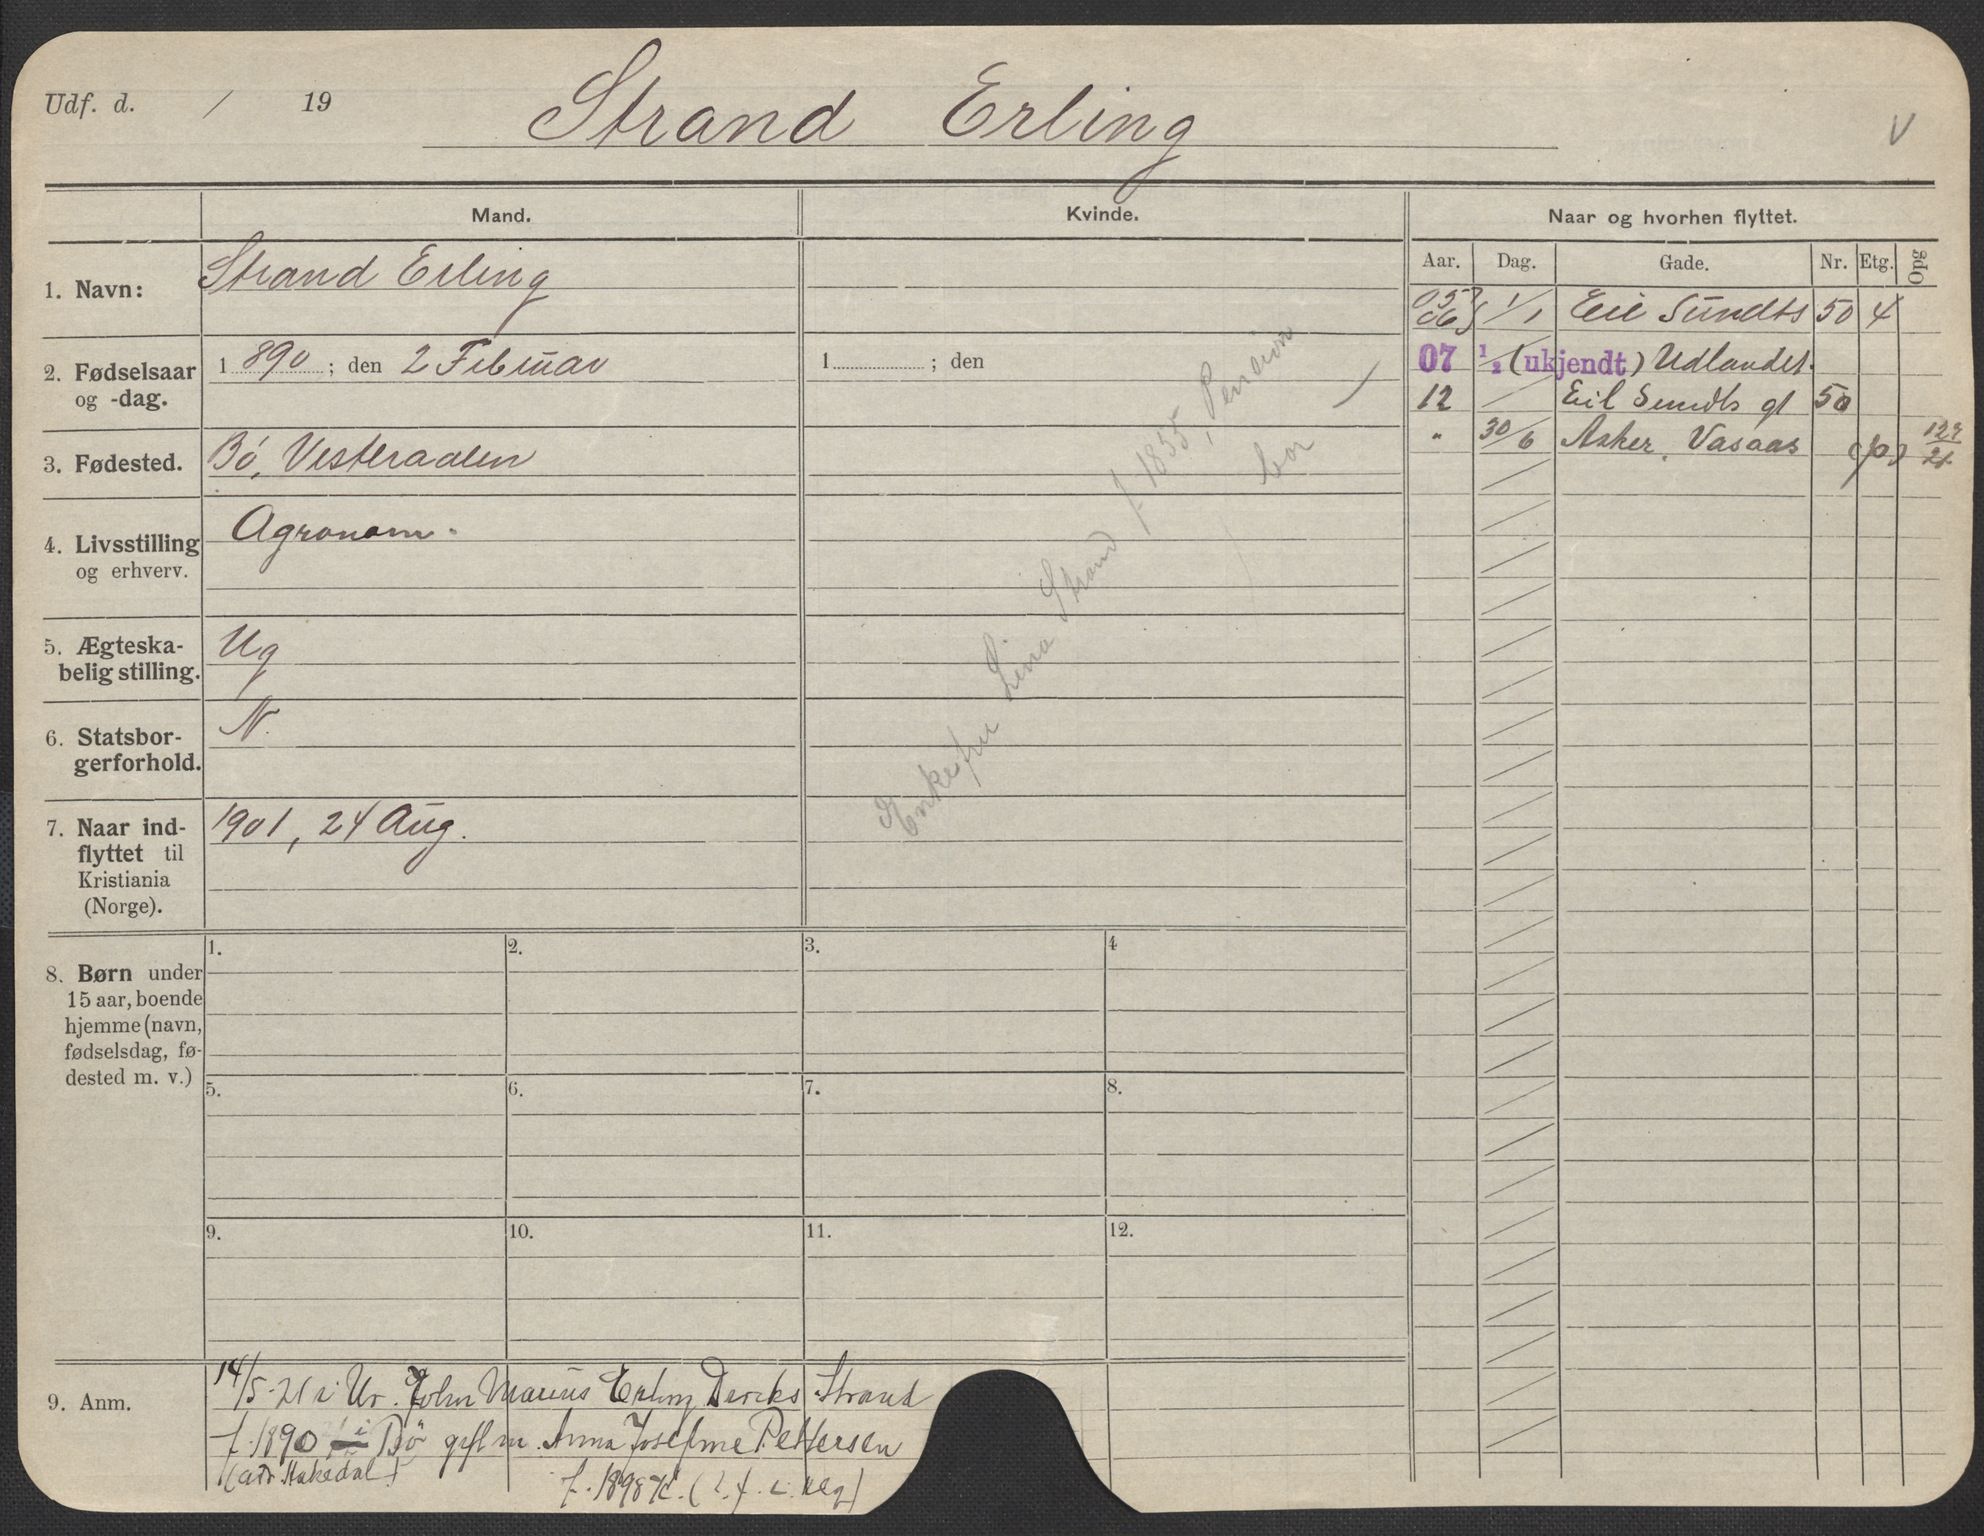 Udf. d. / 19
Strand Erling
V
Mand.
Kvinde.
Naar og hvorhen flyttet.
Aar. Dag. Gade. Nr. Etg. Opg
1. Navn:
Strand Erling
2. Fødselsaar
og -dag.
1890; den 2 Februar
1 ; den
3. Fødested.
Bó, Vesteraalen
4. Livsstilling
og erhverv.
Agronom.
5. Ægteska-
belig stilling.
Ug
6. Statsbor-
gerforhold.
N.
7. Naar ind-
flyttet til
Kristiania
(Norge).
1901, 24 Aug.
Enkefru Lina Strand f. 1855, Pension
bor
05
06 1/1 Eil Sundts 50 4
07 1/2 (ukjendt) Udlandet.
12 Eil Sundts gt 50
" 30/6 Asker, Vasaas
8. Børn under
15 aar, boende
hjemme (navn,
fødselsdag, fø-
dested m. v.)
1. 2. 3. 4
5. 6. 7. 8.
9. 10. 11. 12.
9. Anm.
14/5-21 i Ur. John Marius Erling Dercks Strand
f. 1890 i Bö gift m. Anna Josefine Pettersen
(adr Hakedal)
f. 1898